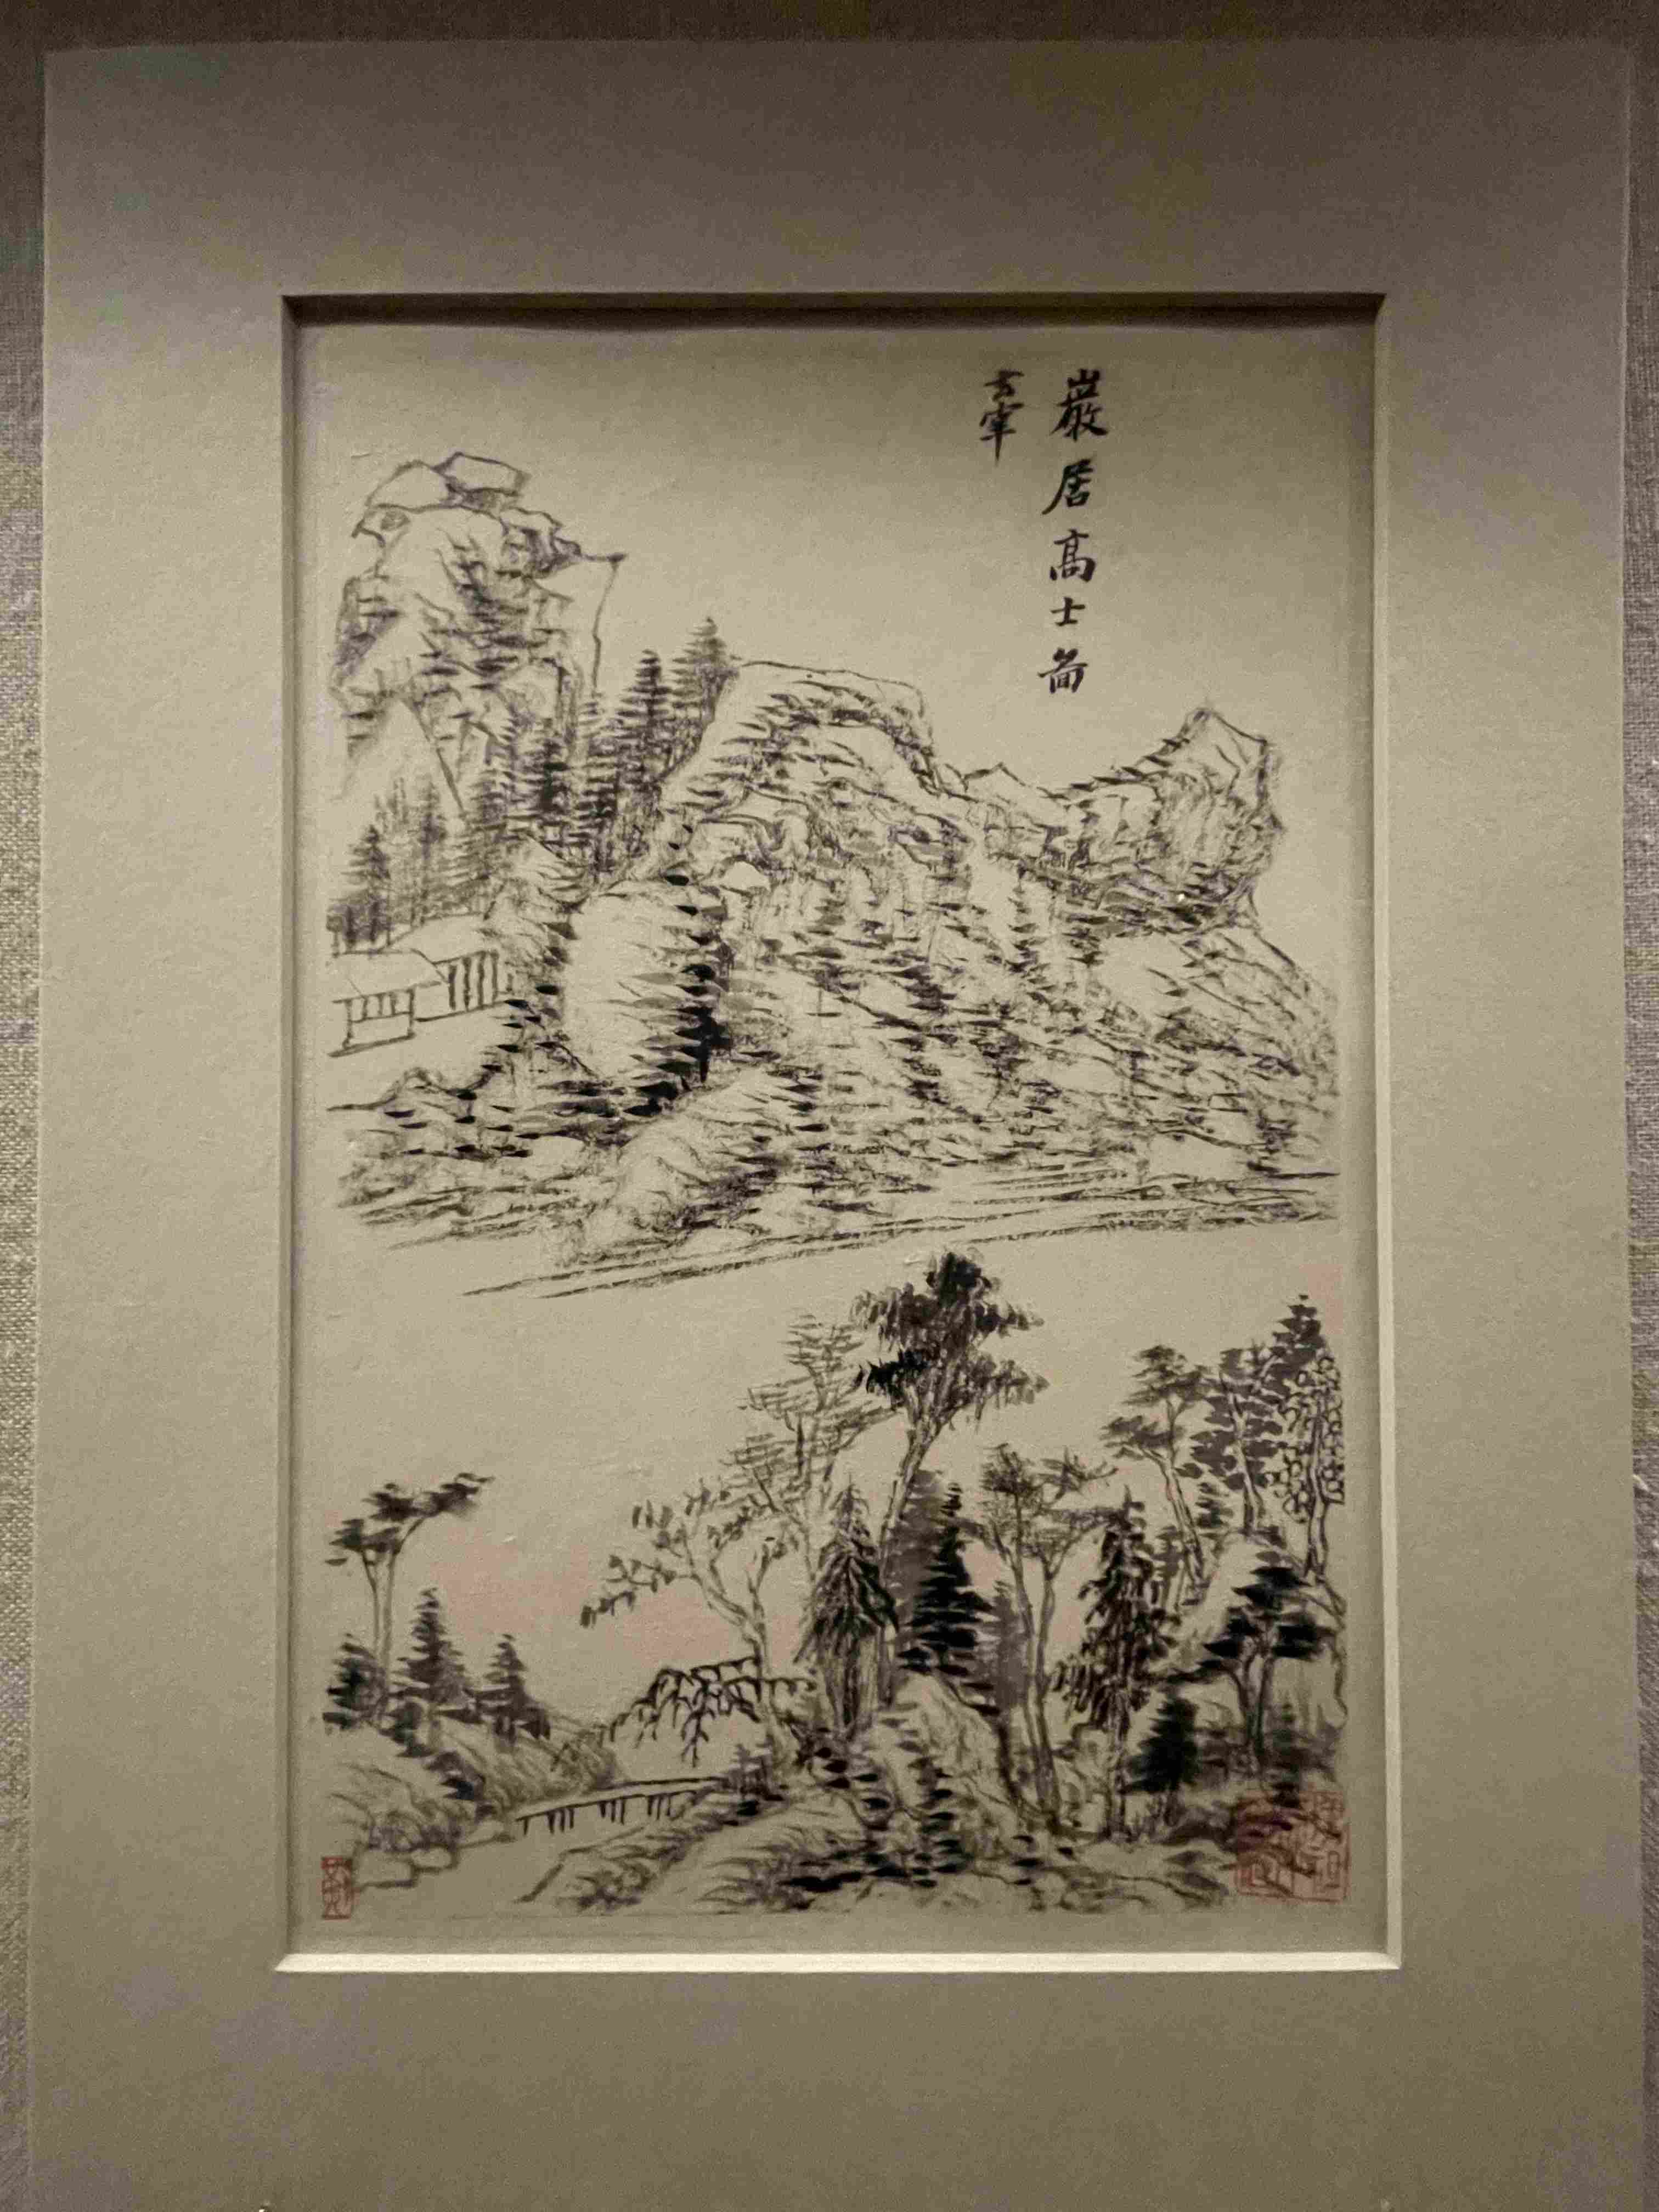 巖居高士啚
玄宰